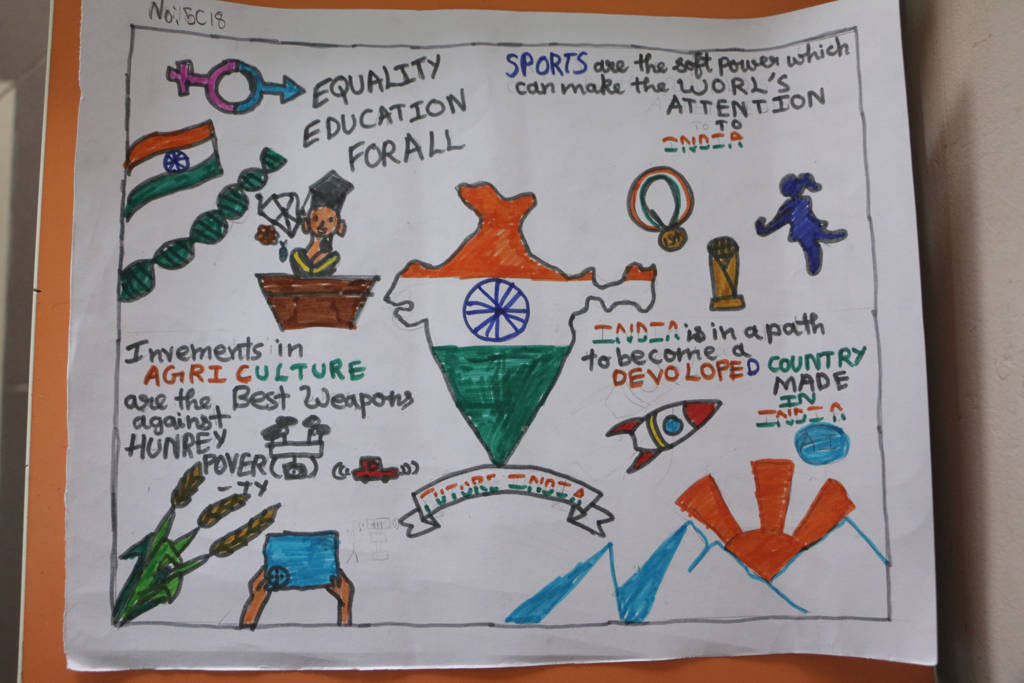 No: 5C18
EQUALITY
EDUCATION
FOR ALL
SPORTS are the soft power which
can make the WORL'S
ATTENTION
TO
INDIA
Invements in
AGRICULTURE
are the Best Weapons
against
HUNREY
POVER
-TY
INDIA is in a path
to become a
DEVOLOPED COUNTRY
MADE
IN
INDIA
AI
FUTURE INDIA